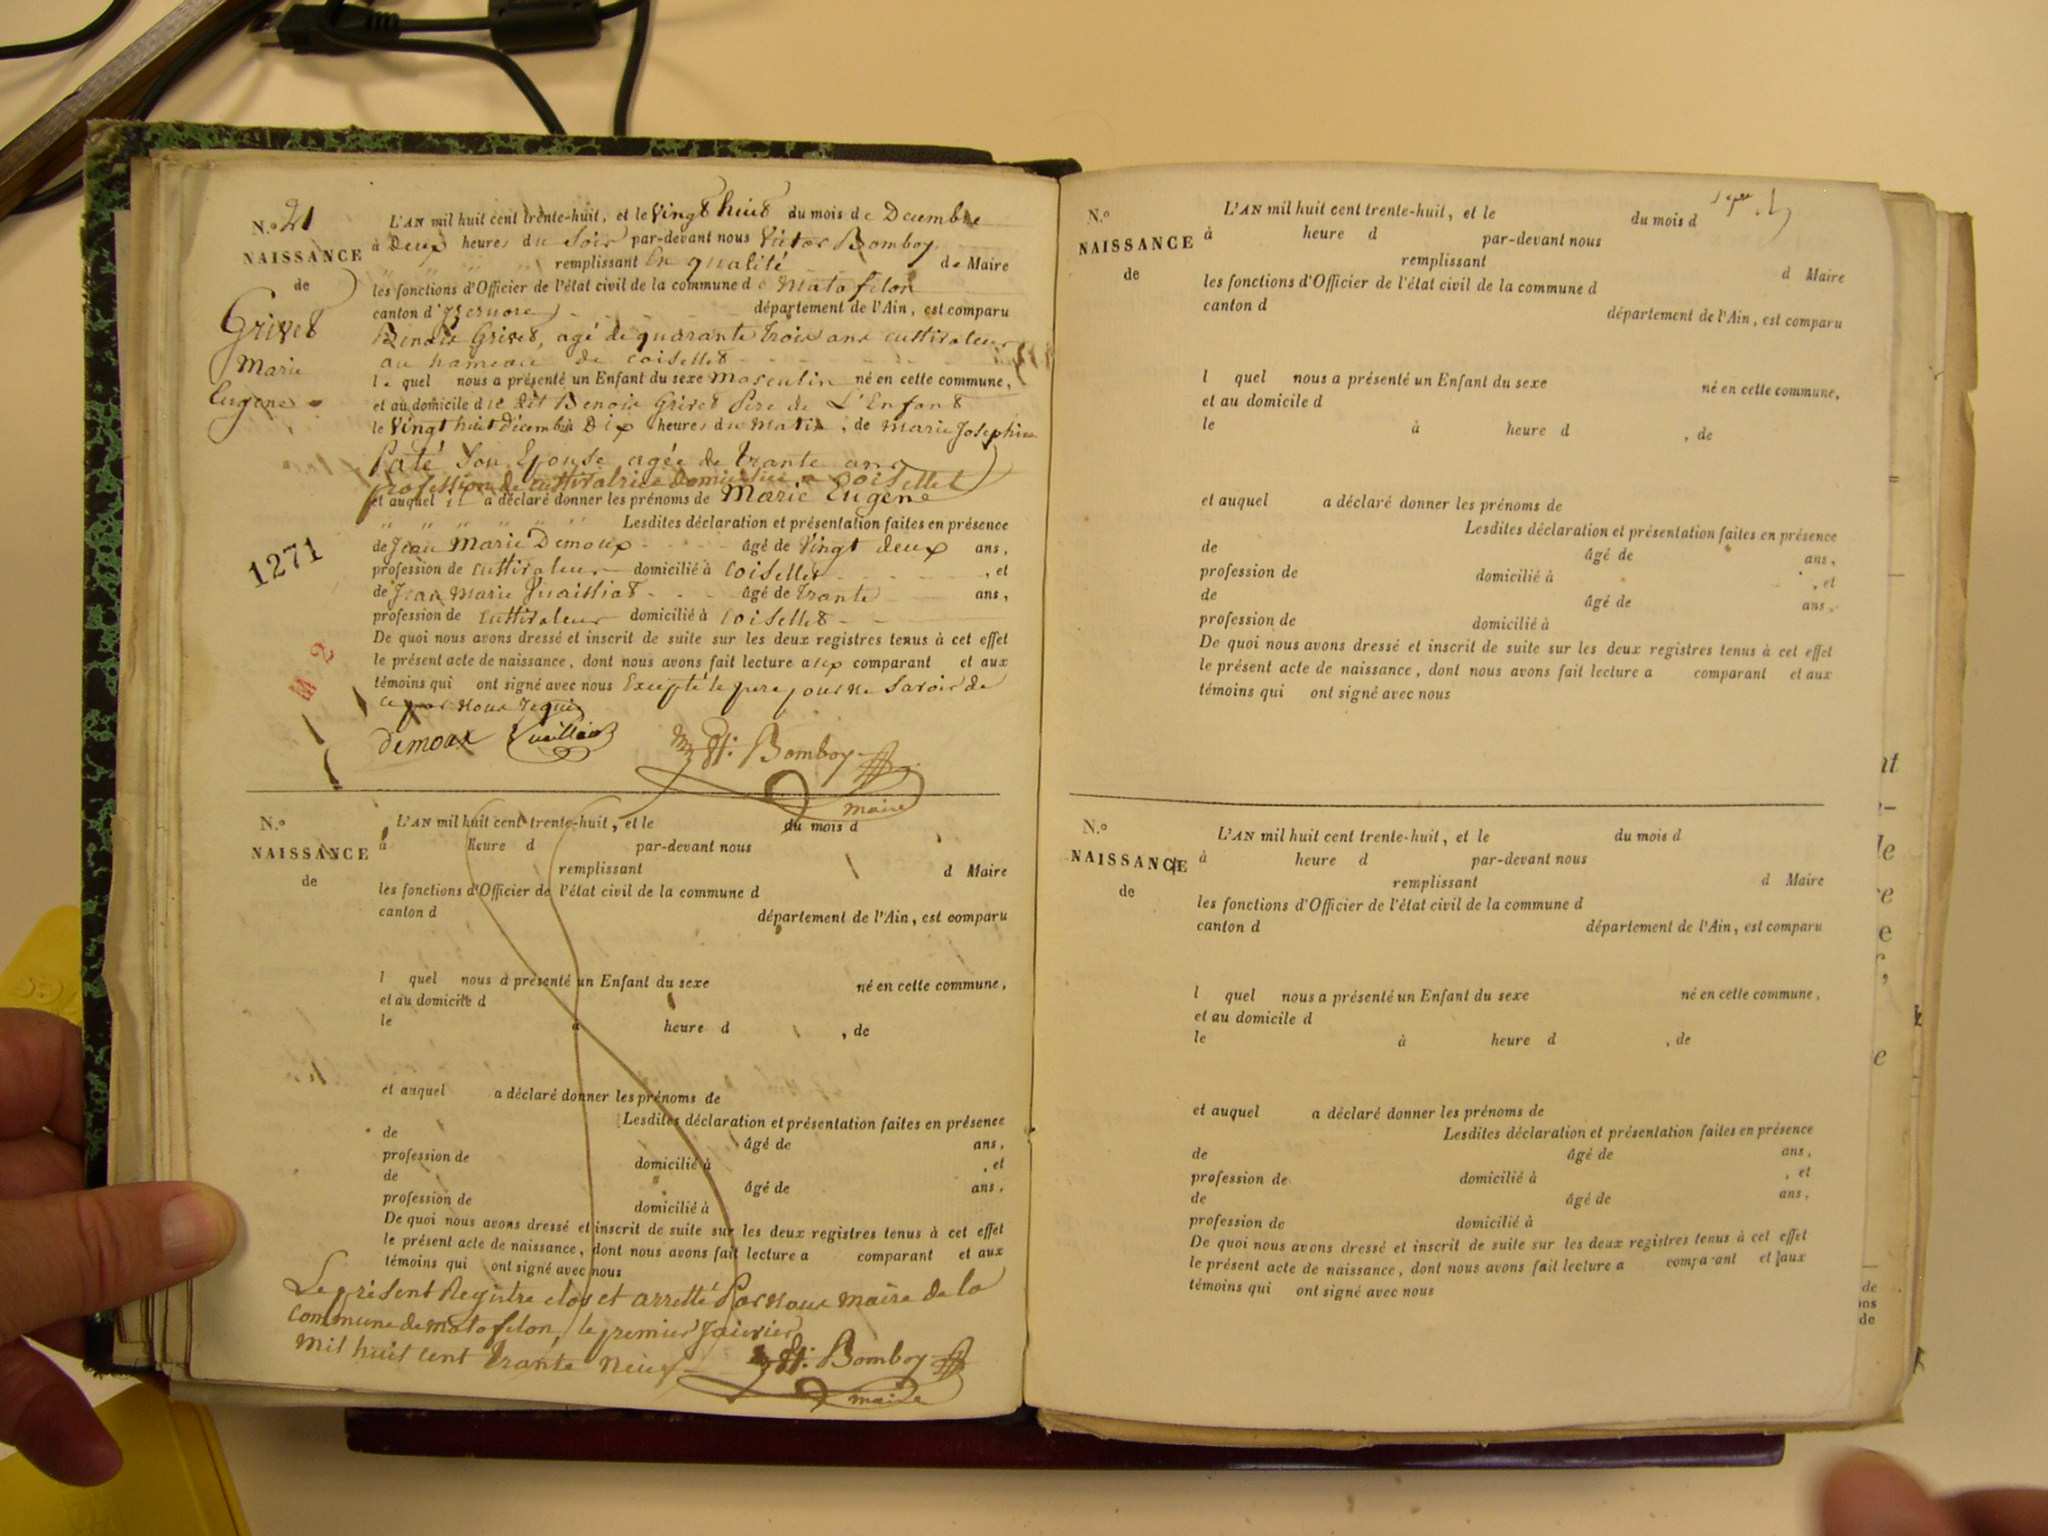 N.º 21
NAISSANCE
de
Grivet
Marie
Eugene
1271
M 2
L'AN mil huit cent trente-huit, et le Vingt huit du mois de Decembre
à Deux heures du Soir par-devant nous Victor Bomboy
remplissant En qualité de Maire
les fonctions d'Officier de l'état civil de la commune de Matafelon
canton d'Izernore département de l'Ain, est comparu
Benoit Grivet, agé de quarante trois ans cultivateur
au hameau de Coisellet
le quel nous a présenté un Enfant du sexe masculin né en cette commune,
et au domicile du dit Benoit Grivet Pere de L'Enfant
le Vingt huit Décembre à Dix heures du Matin, de Marie Josephine
Paté Son Epouse agée de trante ans
profession de cultivatrice domiciliée a Coisellet
et auquel il a déclaré donner les prénoms de Marie Eugene
Lesdites déclaration et présentation faites en présence
de Jean Marie Demoux âgé de Vingt deux ans,
profession de cultivateur domicilié à Coisellet, et
de Jean Marie Vuaillat âgé de trante ans,
profession de cultivateur domicilié à Coisellet
De quoi nous avons dressé et inscrit de suite sur les deux registres tenus à cet effet
le présent acte de naissance, dont nous avons fait lecture aux comparant et aux
témoins qui ont signé avec nous Excepté le pere pour ne Savoir de
ce par nous requis
demoux Vuaillat Bomboy
maire
N.º
NAISSANCE
de
L'AN mil huit cent trente-huit, et le du mois d
à heure d par-devant nous
remplissant d Maire
les fonctions d'Officier de l'état civil de la commune d
canton d département de l'Ain, est comparu
l quel nous a présenté un Enfant du sexe né en cette commune,
et au domicile d
le à heure d , de
et auquel a déclaré donner les prénoms de
Lesdites déclaration et présentation faites en présence
de âgé de ans,
profession de domicilié à , et
de âgé de ans,
profession de domicilié à
De quoi nous avons dressé et inscrit de suite sur les deux registres tenus à cet effet
le présent acte de naissance, dont nous avons fait lecture a comparant et aux
témoins qui ont signé avec nous
Le présent Registre clos et arretté Par Nous maire de la
commune de matafelon, le premier Janvier
mil huit cent trante neuf
Bomboy
maire
N.º
NAISSANCE
de
L'AN mil huit cent trente-huit, et le du mois d
à heure d par-devant nous
remplissant d Maire
les fonctions d'Officier de l'état civil de la commune d
canton d département de l'Ain, est comparu
l quel nous a présenté un Enfant du sexe né en cette commune,
et au domicile d
le à heure d , de
et auquel a déclaré donner les prénoms de
Lesdites déclaration et présentation faites en présence
de âgé de ans,
profession de domicilié à , et
de âgé de ans,
profession de domicilié à
De quoi nous avons dressé et inscrit de suite sur les deux registres tenus à cet effet
le présent acte de naissance, dont nous avons fait lecture a comparant et aux
témoins qui ont signé avec nous
N.º
NAISSANCE
de
L'AN mil huit cent trente-huit, et le du mois d
à heure d par-devant nous
remplissant d Maire
les fonctions d'Officier de l'état civil de la commune d
canton d département de l'Ain, est comparu
l quel nous a présenté un Enfant du sexe né en cette commune,
et au domicile d
le à heure d , de
et auquel a déclaré donner les prénoms de
Lesdites déclaration et présentation faites en présence
de âgé de ans,
profession de domicilié à , et
de âgé de ans,
profession de domicilié à
De quoi nous avons dressé et inscrit de suite sur les deux registres tenus à cet effet
le présent acte de naissance, dont nous avons fait lecture a comparant et aux
témoins qui ont signé avec nous